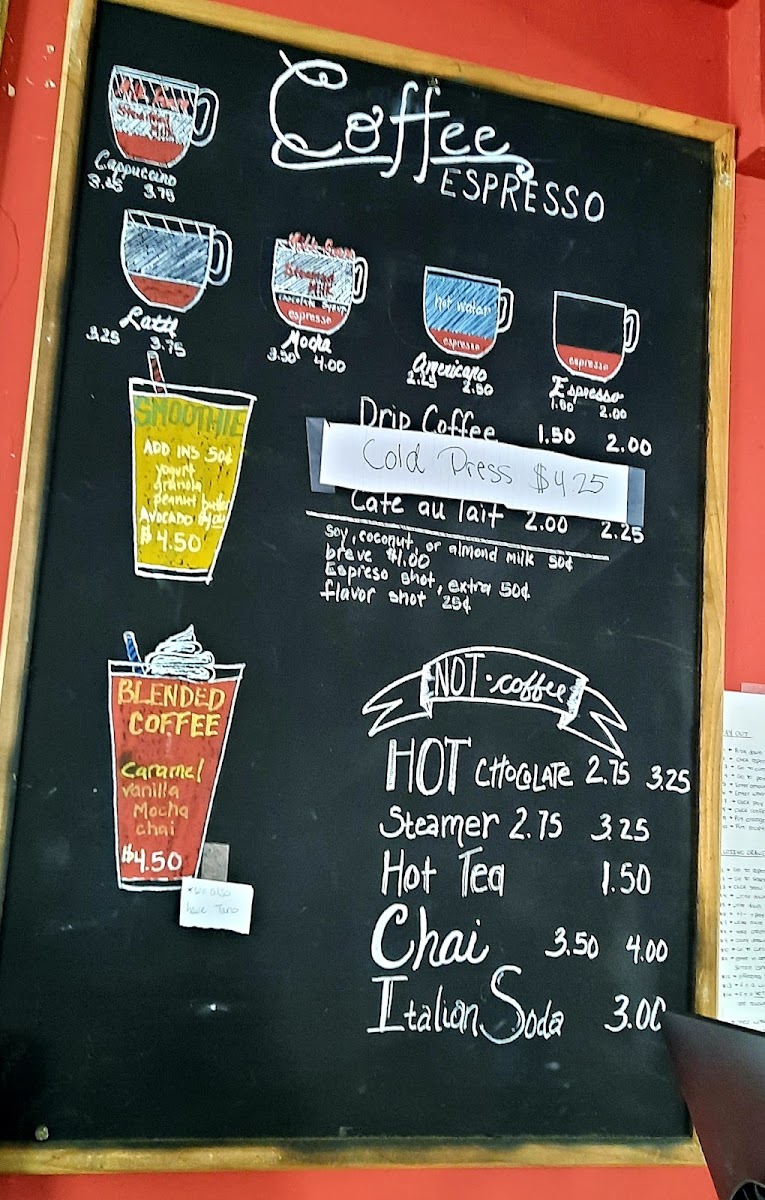 Coffee
ESPRESSO
Steamed
Milk
Cappuccino
3.25 3.75
Latte
3.25 3.75
Milk Foam
Steamed
Milk
chocolate syrup
espresso
Mocha
3.50 4.00
hot water
espresso
Americano
2.25 2.50
espresso
Espresso
2.00
Drip Coffee 1.50 2.00
Cold Press $4.25
Cafe au lait 2.00 2.25
Soy, coconut, or almond milk 50¢
breve $1.00
Espreso shot, extra 50¢
flavor shot 25¢
SMOOTHIE
ADD INS 50¢
yogurt
granola
peanut butter
AVOCADO
$4.50
BLENDED
COFFEE
Caramel
Vanilla
Mocha
chai
$4.50
have Taro
NOT•coffee
HOT CHOCOLATE 2.75 3.25
Steamer 2.75 3.25
Hot Tea 1.50
Chai 3.50 4.00
Italian Soda 3.00